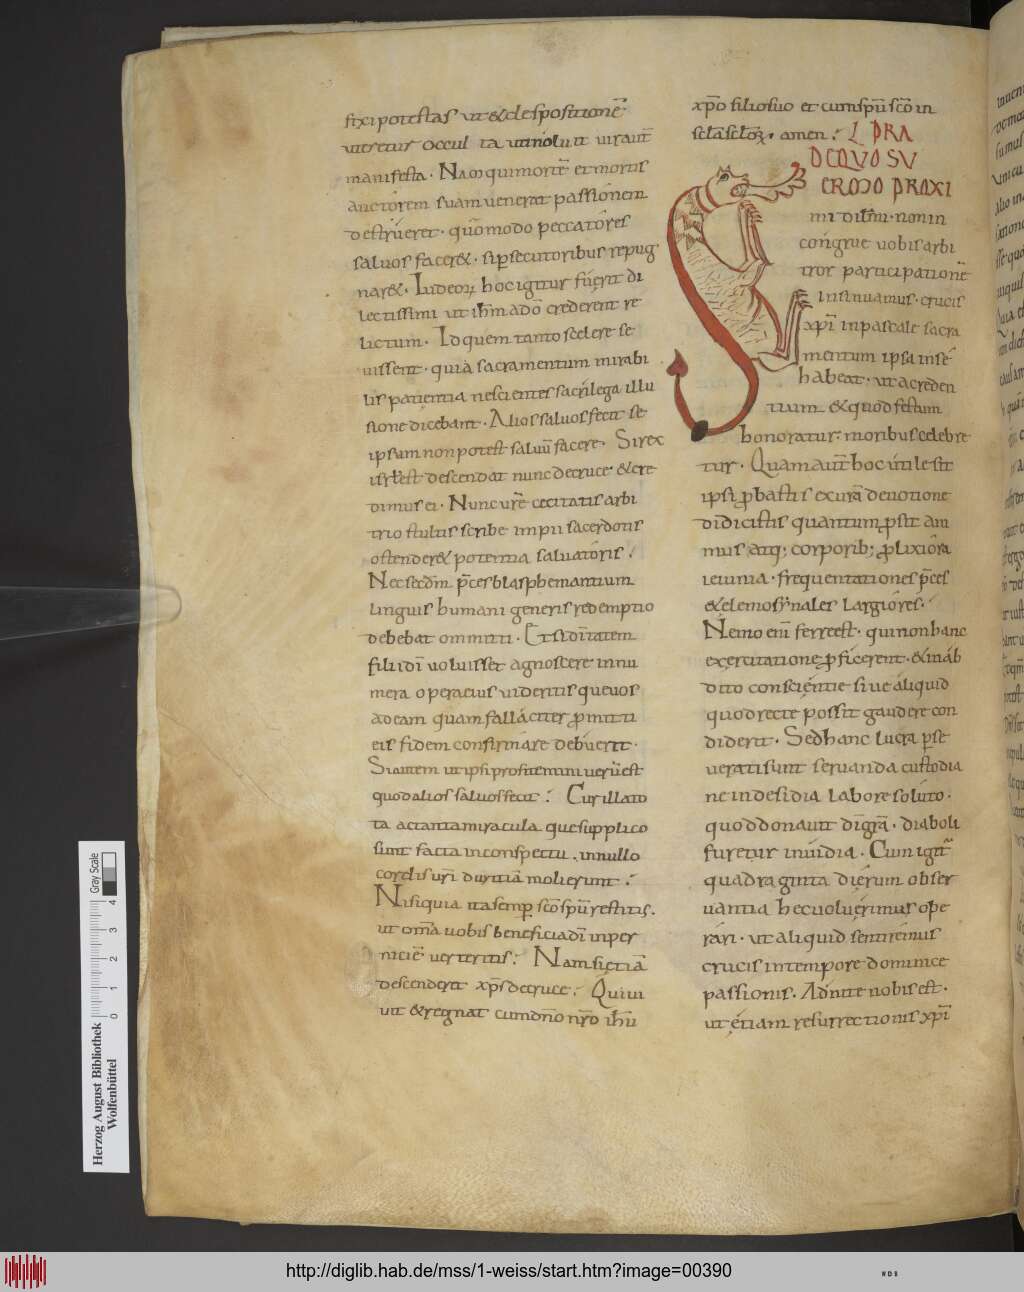 fixi potestas ut & desposition͞e
uteretur occul ta utinoluit uiraut͞
manifesta · Nam qui morte͞ et mortis
auctorem suam uenerat passionem
destrueret · qu͞omodo peccatores
saluos facer& · si persecutoribus repug
nar& · Iudeorꝝ hoc igitur fuerit di
lectissimi ut ih͞m ad͞o crederent re
lictum · Id quem tanto scelere se
uissent · quia sacramentum mirabi
lis patientia nescientes sacrilega illu
sione dicebant · Alios saluos fecit se
ipsum non potest saluu͞ facere · Si rex
isrl͞ est descendat nunc de cruce · & cre
dimus ei · Nunc ur͞e cecitatis arbi
trio stultis scribe impii sacerdotis
ostender& potentia saluatoris ·
Nec sec͞dm p͞ces blasphemantium
linguis humani generis redemptio
debebat ommitti · Et si di͞tatem
filii di͞ uoluisset agnoscere innu
mera operacius uideritis que uos
ad eam quam fallaciter promitti
eis fidem confirmare debuerit ·
Si autem ut ipsi profitemini ueru͞ est
quod alios saluos fecit · Cur illa to
ta acta nta miracula que supplico
sunt facta in conspectu · in nullo
cordis ur͞i duritia͞ molierunt ·
Nisi quia ita semp sc͞o sp͞u restitis ·
ut om͞a uobis beneficia di͞ in per
nicie͞ uerteritis · Nam si etia͞
descenderet xp͞s de cruce · Qui ui
uit & regnat cum d͞no nr͞o ih͞u
xp͞o filio suo et cum sp͞u sc͞o in
scl͞a scl͞oꝝ · amen ·
DE QUO SU
ER OMO PROXI
mi dil͞mi · non in
congrue uobis arbi
tror participatione͞
insinuamus · crucis
xp͞i in pascale sacra
mentum ipsa in se
habeat · ut a creden
tium & quod festum
honoratur · moribus celebre
tur · Quam aut͞ hoc utile sit
ipsi probastis ex ura͞ deuotione
didicistis quantum prosit ani
mus atq; corporib; prolixiora
ieiunia · frequentationes p͞ces
& elemosynales largiores ·
Nemo eni͞ ferre est · qui non hanc
exercitatione proficerent · & in ab
dito conscientie siue aliquid
quod recte possit gaudere con
diderit · Sed hanc lucra p͞ se
uerati sunt seruanda custodia
ne in desidia labore soluto ·
quod donauit di͞ gr͞a · diaboli
furetur inuidia · Cum igit͞
quadraginta dierum obser
uantia hec uoluerimus ope
rari · ut aliquid sentiremus
crucis in tempore dominice
passionis · Adnite nobis est ·
ut etiam resurrectionis xp͞i
Herzog August Bibliothek
Wolfenbüttel
0 1 2 3 4
Gray Scale
http://diglib.hab.de/mss/1-weiss/start.htm?image=00390